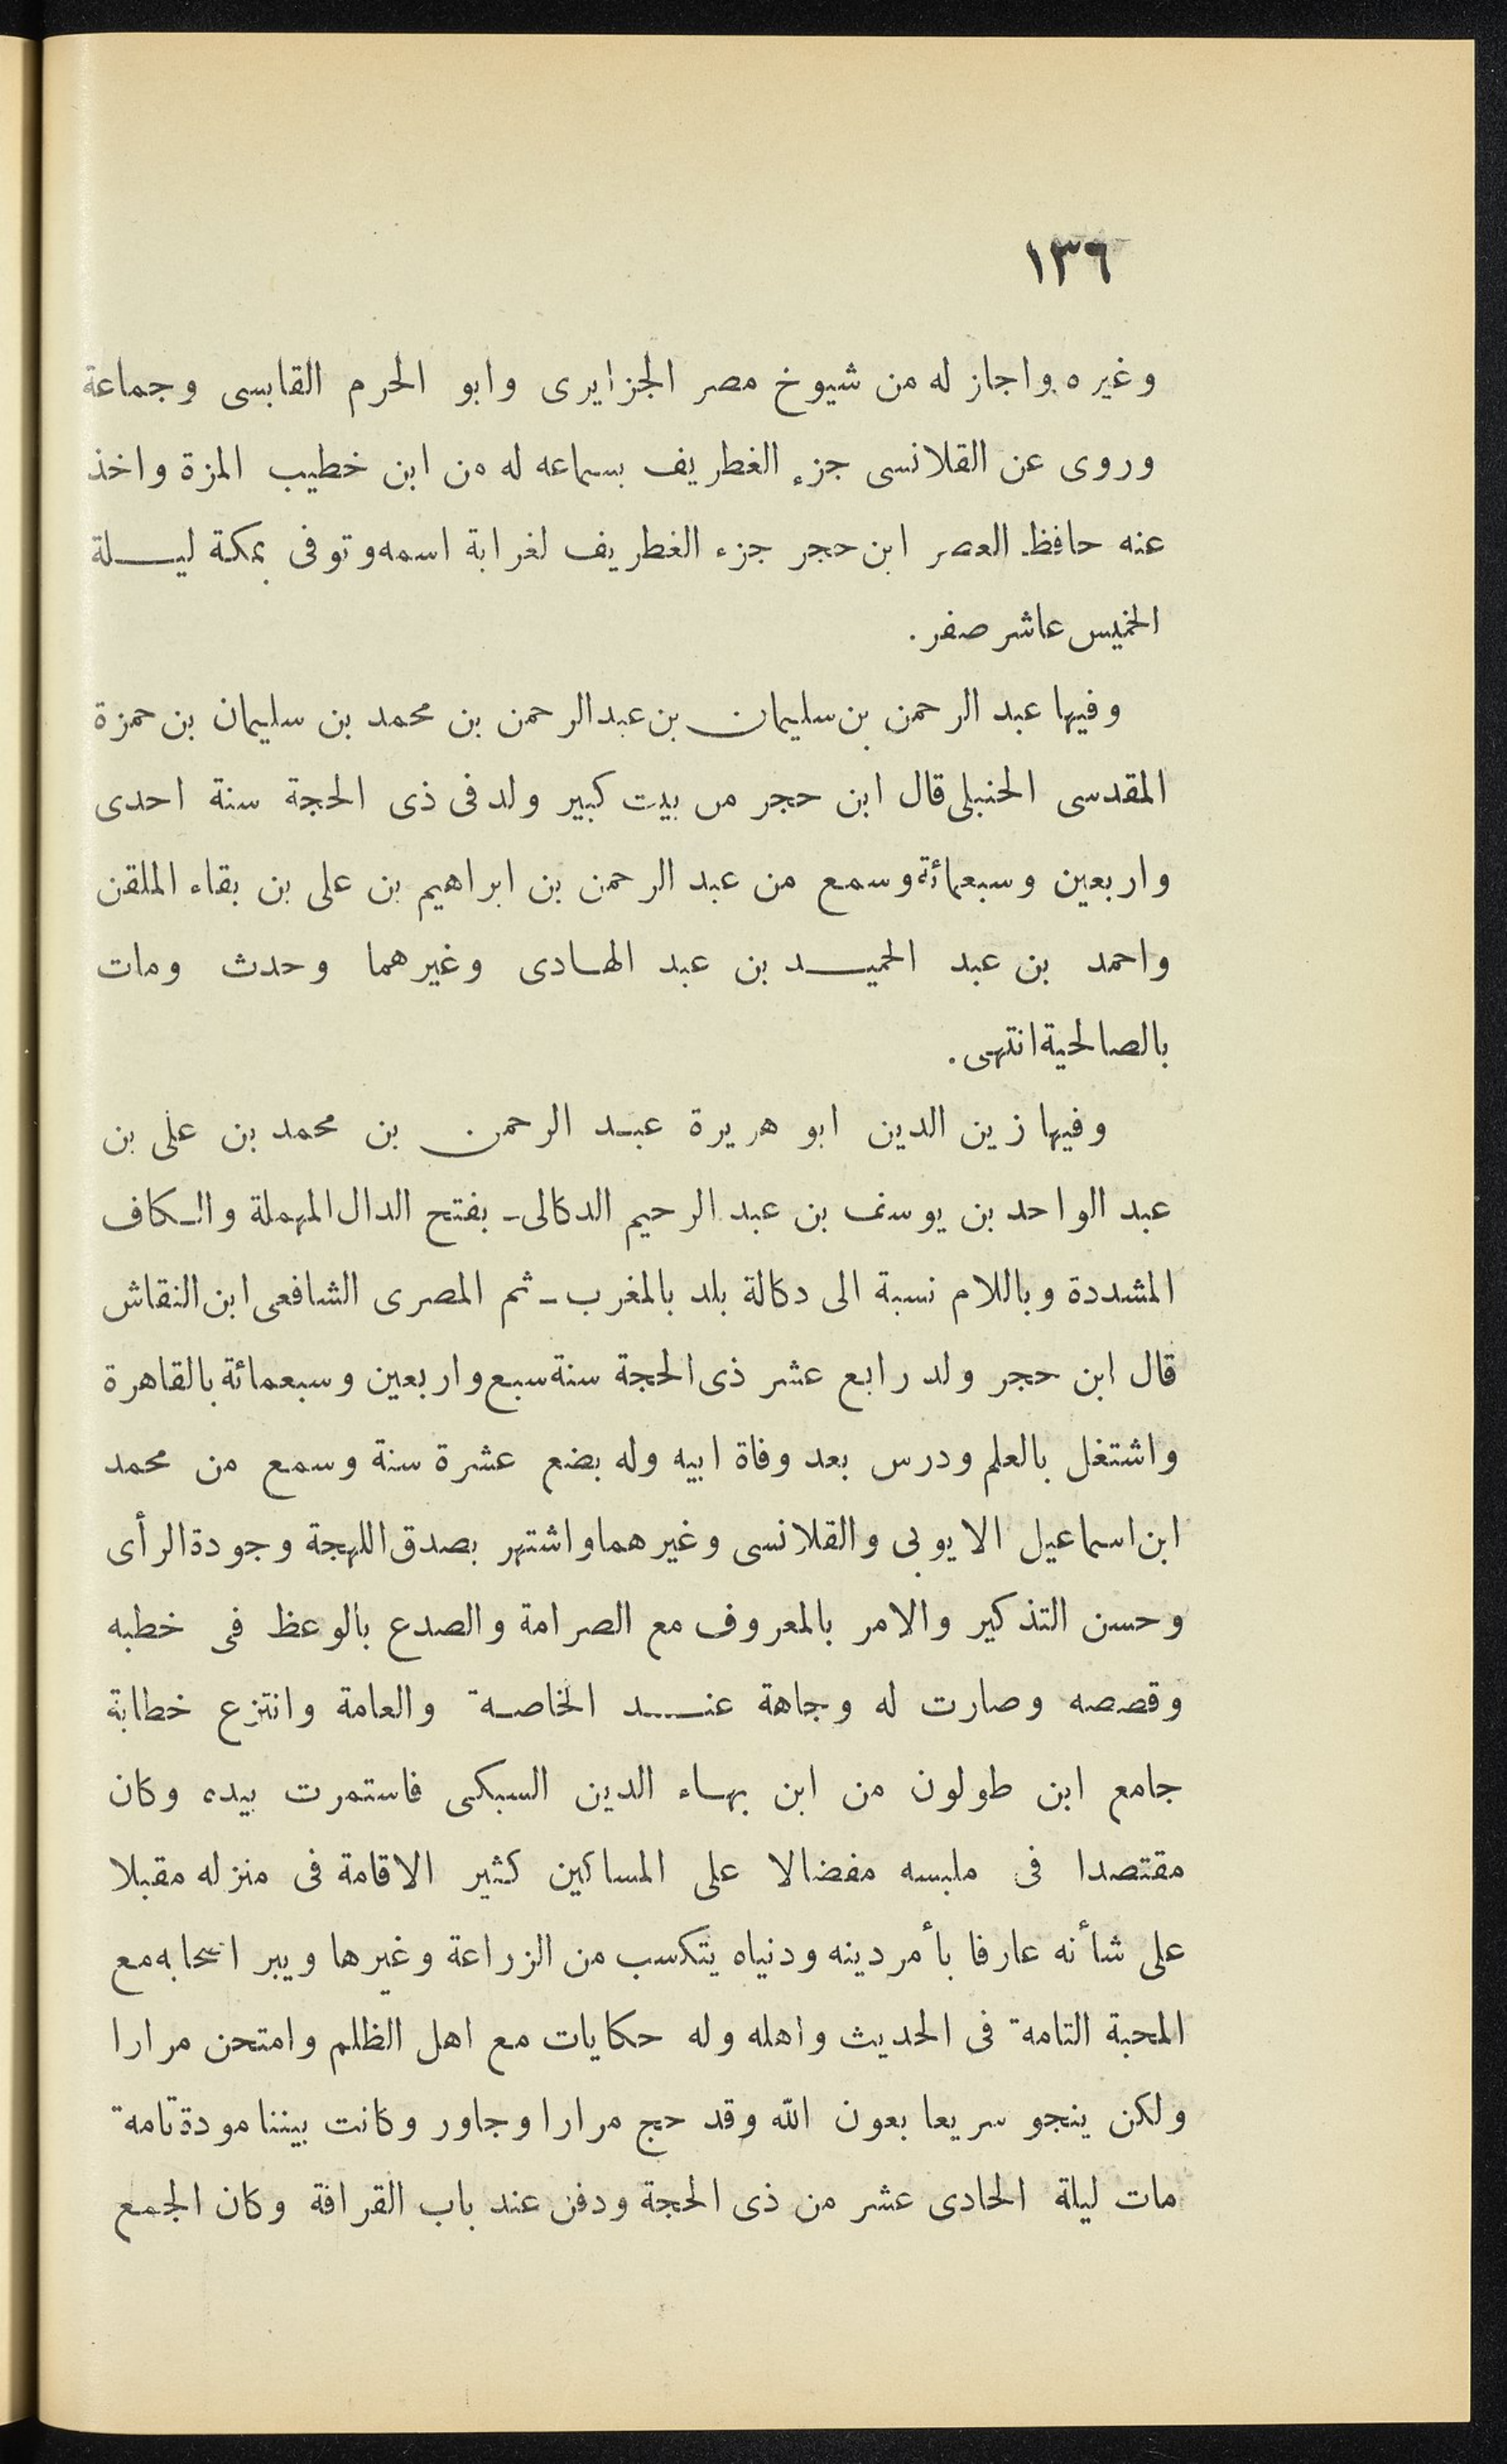 ١٣٦
وغيره واجاز له من شيوخ مصر الجزايرى وابو الحرم القابسى وجماعة
وروى عن القلانسى جزء الغطريف بسماعه له من ابن خطيب المزة واخذ
عنه حافظ العصر ابن حجر جزء الغطريف لغرابة اسمه وتوفى بمكة ليلة
الخميس عاشر صفر.
وفيها عبد الرحمن بن سليمان بن عبد الرحمن بن محمد بن سليمان بن حمزة
المقدسى الحنبلى قال ابن حجر من بيت كبير ولد فى ذى الحجة سنة احدى
واربعين وسبعمائة وسمع من عبد الرحمن بن ابراهيم بن على بن بقاء الملقن
واحمد بن عبد الحميد بن عبد الهادى وغيرهما وحدث ومات
بالصالحية انتهى.
وفيها زين الدين ابو هريرة عبد الرحمن بن محمد بن على بن
عبد الواحد بن يوسف بن عبد الرحيم الدكالى ـ بفتح الدال المهملة والكاف
المشددة وباللام نسبة الى دكالة بلد بالمغرب ـ ثم المصرى الشافعى ابن النقاش
قال ابن حجر ولد رابع عشر ذى الحجة سنة سبع واربعين وسبعمائة بالقاهرة
واشتغل بالعلم ودرس بعد وفاة ابيه وله بضع عشرة سنة وسمع من محمد
ابن اسماعيل الايوبى والقلانسى وغيرهما واشتهر بصدق اللهجة وجودة الرأى
وحسن التذكير والامر بالمعروف مع الصرامة والصدع بالوعظ فى خطبه
وقصصه وصارت له وجاهة عند الخاصة والعامة وانتزع خطابة
جامع ابن طولون من ابن بهاء الدين السبكى فاستمرت بيده وكان
مقتصدا فى ملبسه مفضالا على المساكين كثير الاقامة فى منزله مقبلا
على شأنه عارفا بأمر دينه ودنياه يتكسب من الزراعة وغيرها ويبر اصحابه مع
المحبة التامة فى الحديث واهله وله حكايات مع اهل الظلم وامتحن مرارا
ولكن ينجو سريعا بعون الله وقد حج مرارا وجاور وكانت بيننا مودة تامة
مات ليلة الحادى عشر من ذى الحجة ودفن عند باب القرافة وكان الجمع